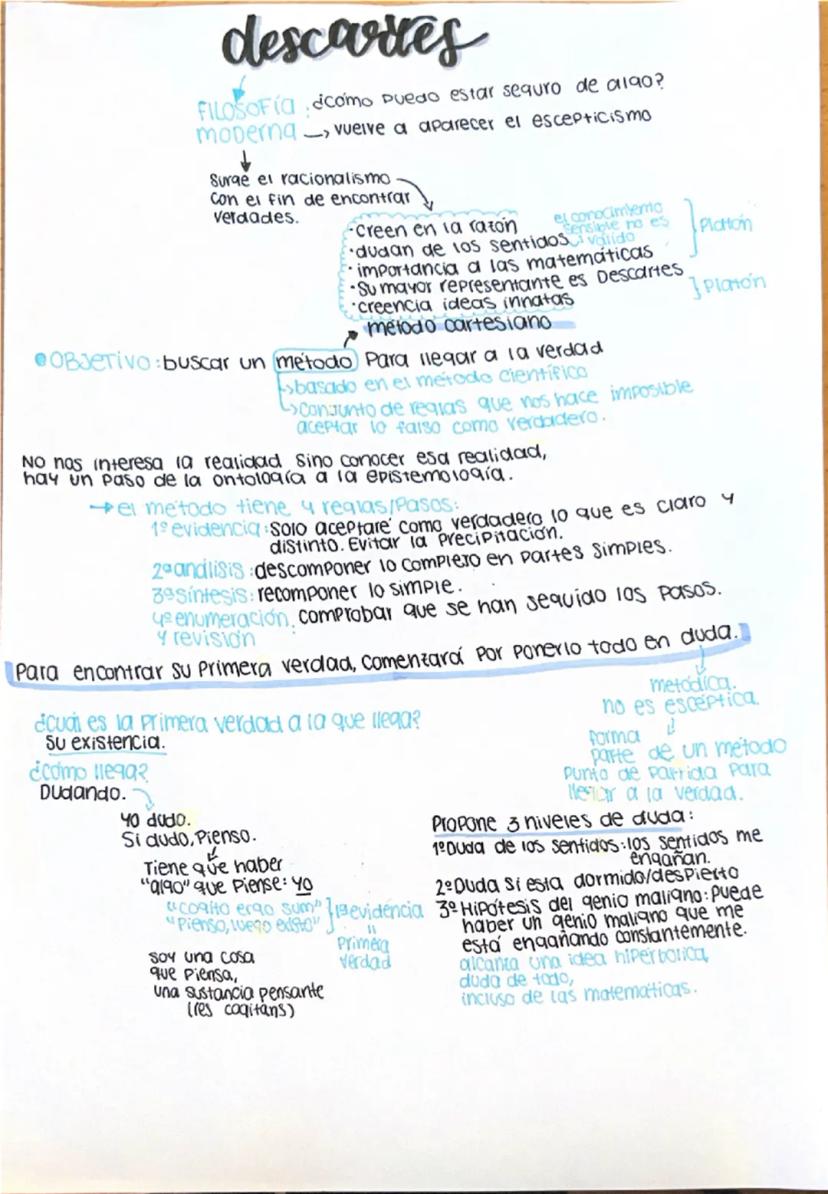 descartes
FILOSOFÍA : ¿cómo puedo estar seguro de algo?
moderna → vuelve a aparecer el escepticismo
Surge el racionalismo
con el fin de encontrar
verdades.
·Creen en la razón
·dudan de los sentidos
el conocimiento
sensible no es
válido
· importancia a las matemáticas
Platón
·Su mayor representante es Descartes
·creencia ideas innatas
Platón
método cartesiano
OBJETIVO: buscar un método Para llegar a la verdad
↳basado en el método científico
↳conjunto de reglas que nos hace imposible
aceptar lo falso como verdadero.
NO nos interesa la realidad sino conocer esa realidad,
hay un paso de la ontología a la epistemología.
→ el método tiene 4 reglas/pasos:
1º evidencia: solo aceptaré como verdadero lo que es claro y
distinto. Evitar la precipitación.
2º análisis: descomponer lo complejo en partes simples.
3º síntesis: recomponer lo simple.
4º enumeración: comprobar que se han seguido los pasos.
y revisión
Para encontrar su primera verdad, comenzará por ponerlo todo en duda.
metódica.
no es escéptica.
forma
parte de un método
punto de partida para
llegar a la verdad.
¿cuál es la primera verdad a la que llega?
Su existencia.
¿cómo llega?
Dudando.
yo dudo.
Si dudo, pienso.
Tiene que haber
"algo" que piense: yo
"cogito ergo sum"
"pienso, luego existo"
1ª evidencia
=
Primera
verdad
soy una cosa
que piensa,
una sustancia pensante
(res cogitans)
Propone 3 niveles de duda:
1º Duda de los sentidos: los sentidos me
engañan.
2º Duda si está dormido/despierto
3º Hipótesis del genio maligno: puede
haber un genio maligno que me
está engañando constantemente.
alcanza una idea hiperbólica,
duda de todo,
incluso de las matemáticas.